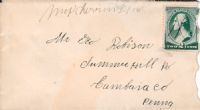 Mr Geo Robison
Summerhill Po
Cambria Co
Penna
TWO CENTS